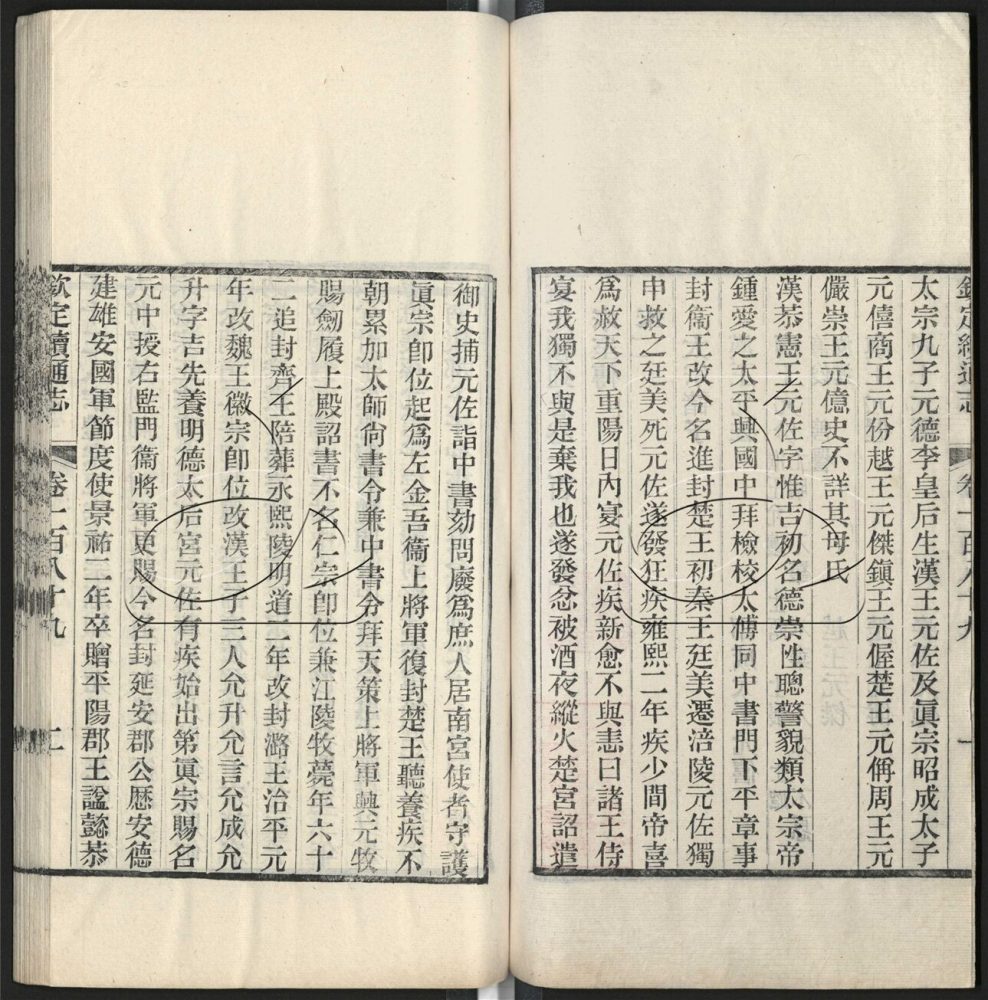 欽定續通志 卷一百八十九 一
太宗九子元德李皇后生漢王元佐及眞宗昭成太子
元僖商王元份越王元傑鎭王元偓楚王元偁周王元
儼崇王元億史不詳其母氏
漢恭憲王元佐字惟吉初名德崇性聰警貌類太宗帝
鍾愛之太平興國中拜檢校太傅同中書門下平章事
封衞王改今名進封楚王初秦王廷美遷涪陵元佐獨
申救之廷美死元佐遂發狂疾雍熙二年疾少間帝喜
爲赦天下重陽日內宴元佐疾新愈不與恚曰諸王侍
宴我獨不與是棄我也遂發忿被酒夜縱火楚宮詔遣
御史捕元佐詣中書劾問廢爲庶人居南宮使者守護
眞宗卽位起爲左金吾衞上將軍復封楚王聽養疾不
朝累加太師尙書令兼中書令拜天策上將軍興元牧
賜劒履上殿詔書不名仁宗卽位兼江陵牧薨年六十
二追封齊王陪葬永熙陵明道二年改封潞王治平元
年改魏王徽宗卽位改漢王子三人允升允言允成允
升字吉先養明德太后宮元佐有疾始出第眞宗賜名
元中授右監門衞將軍更賜今名封延安郡公歷安德
建雄安國軍節度使景祐二年卒贈平陽郡王諡懿恭
欽定續通志 卷一百八十九 二